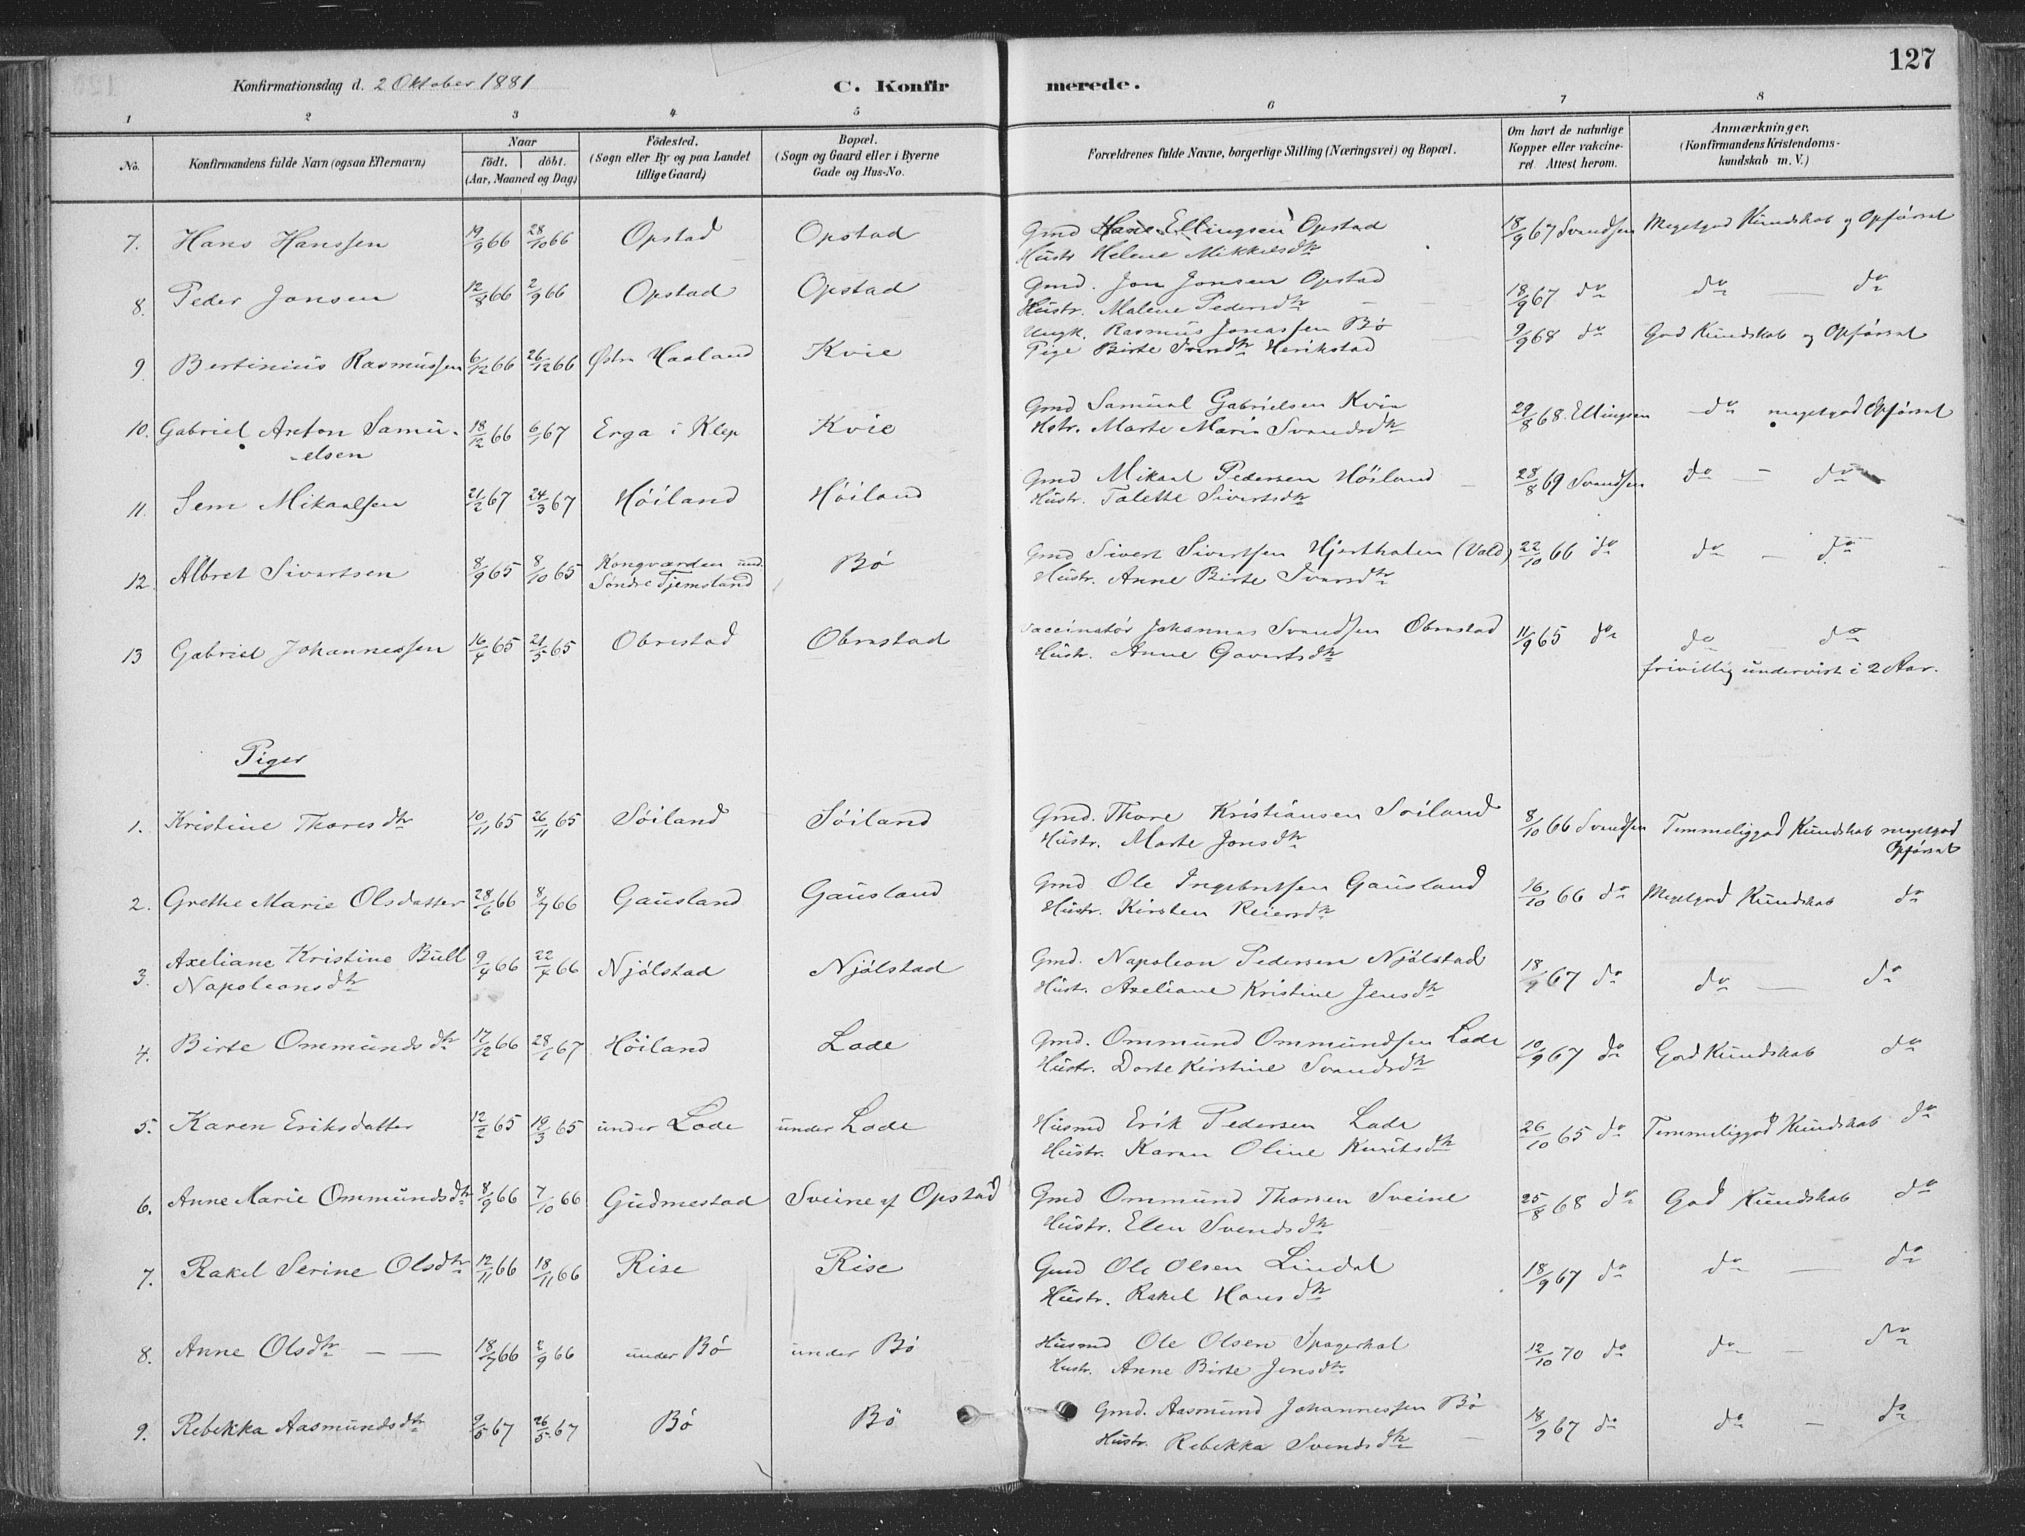 127
Konfirmationsdag d. 2 Oktober 1881 C. Konfirmerede.
1 2 3 4 5 6 7 8
No. Konfirmandens fulde Navn (ogsaa Efternavn) Naar født. døbt. (Aar, Maaned og Dag) Fødested. (Sogn eller By og paa Landet tillige Gaard) Bopæl. (Sogn og Gaard eller i Byerne Gade og Hus-No. Forældrenes fulde Navne, borgerlige Stilling (Næringsvei) og Bopæl. Om havt de naturlige Kopper eller vakcineret. Attest herom. Anmærkninger. (Konfirmandens Kristendomskundskab m. V.)
7. Hans Hanssen 19/9 66 28/10 66 Opstad Opstad Gmd Hans Ellingsen Opstad 18/9 67 Svendsen Megetgod Kundskab og Opførsel
Hustr Helene Mikkelsdtr
8. Peder Jonsen 12/8 66 2/9 66 Opstad Opstad Gmd. Jon Jonsen Opstad 18/9 67 do do — do
Hustr. Malene Pedersdtr
9. Bertinius Rasmussen 6/12 66 26/12 66 Østre Haaland Kvie Ungk. Rasmus Jonassen Bø 9/9 68 do God Kundskab og Opførsel
Pige Birte Iversdtr Herikstad
10. Gabriel Anton Samu- 18/12 66 6/1 67 Erga i Klep Kvie Gmd Samuel Gabrielsen Kvie 29/8 68. Ellingsen do megetgod Opførsel
-elsen Hstr. Marte Marie Svendsdtr
11. Sem Mikaelsen 21/2 67 24/3 67 Høiland Høiland Gmd Mikael Pedersen Høiland 28/8 69 Svendsen do — do
Hustr. Talette Sivertsdtr
12. Albret Sivertsen 8/9 65 8/10 65 Kongvarden und. Søndre Tjemsland Bø Gmd Sivert Sivertsen Hjerthalen (Vald) 22/10 66 do do — do
Hustr. Anne Birte Iversdtr
13 Gabriel Johannessen 16/4 65 21/5 65 Obrestad Obrestad Vaccinatør Johannes Svendsen Obrestad 11/9 65 do do — do
Hustr. Anne Govertsdtr frivillig undervist i 2 Aar.
Piger
1. Kristine Thoresdtr 10/11 65 26/11 65 Søiland Søiland Gmd. Thore Kristiansen Søiland 8/10 66 Svendsen Temmeliggod Kundskab megetgod Opførsel
Hustr. Marte Jonsdtr
2. Grethe Marie Olsdatter 28/6 66 8/7 66 Gausland Gausland Gmd Ole Ingebretsen Gausland 16/10 66 do Megetgod Kundskab do
Hustr. Kirsten Reiersdtr
3. Axeliane Kristine Bull 9/4 66 22/4 66 Njølstad Njølstad Gmd. Napoleon Pedersen Njølstad 18/9 67 do do — do
Napoleonsdtr Hustr. Axeliane Kristine Jensdtr
4. Birte Ommundsdtr 17/12 66 28/1 67 Høiland Lode Gmd. Ommund Ommundsen Lode 10/9 67 do God Kundskab do
Hustr. Dorte Kirstine Svendsdtr
5. Karen Eriksdatter 12/2 65 19/3 65 under Lode under Lode Husmd Erik Pedersen Lode 26/10 65 do Temmeliggod Kundskab do
Hustr. Karen Oline Knutsdtr
6. Anne Marie Ommundsdtr 8/9 66 7/10 66 Gudmestad Sveine af Opstad Gmd Ommund Thorsen Sveine 25/8 68 do God Kundskab do
Hustr. Elen Svendsdtr
7. Rakel Serine Olsdtr 12/11 66 18/11 66 Rise Rise Gmd Ole Olsen Lindal 18/9 67 do do — do
Hustr. Rakel Hansdtr
8. Anne Olsdtr — — 18/7 66 2/9 66 under Bø under Bø Husmd Ole Olsen Spagerhol 12/10 70 do do — do
Hustr. Anne Birte Jonsdtr
9. Rebekka Aasmundsdtr 9/5 67 26/5 67 Bø Bø Gmd. Aasmund Johannessen Bø 18/9 67 do do — do
Hustr. Rebekka Svendsdtr